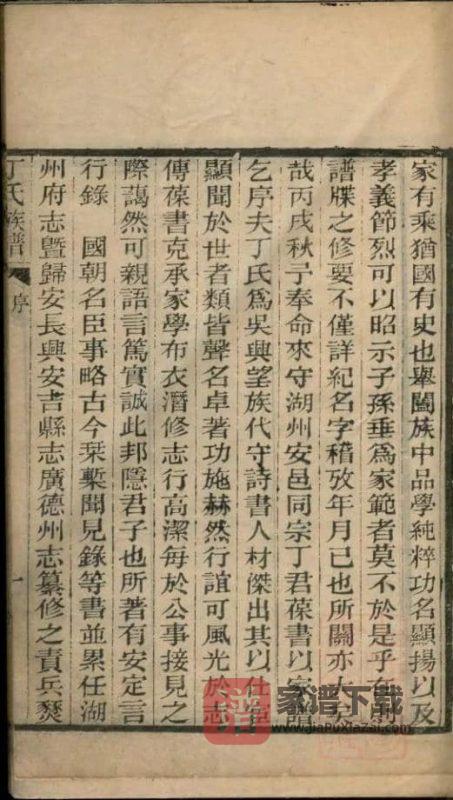 家有乘猶國有史也舉闔族中品學純粹功名顯揚以及
孝義節烈可以昭示子孫垂爲家範者莫不於是乎在則
譜牒之修要不僅詳紀名字稽攷年月已也所關亦大矣
哉丙戌秋予奉命來守湖州安邑同宗丁君葆書以家譜
乞序夫丁氏爲吳興望族代守詩書人材傑出其以仕宦
顯聞於世者類皆聲名卓著功施赫然行誼可風光於志
傳葆書克承家學布衣潛修志行高潔每於公事接見之
際藹然可親語言篤實誠此邦隱君子也所著有安定言
行錄 國朝名臣事略古今琹槧聞見錄等書並累任湖
州府志曁歸安長興安吉縣志廣德州志纂修之責兵燹
丁氏族譜 序 一
譜 家谱下载
www.jiapuxiazai.com